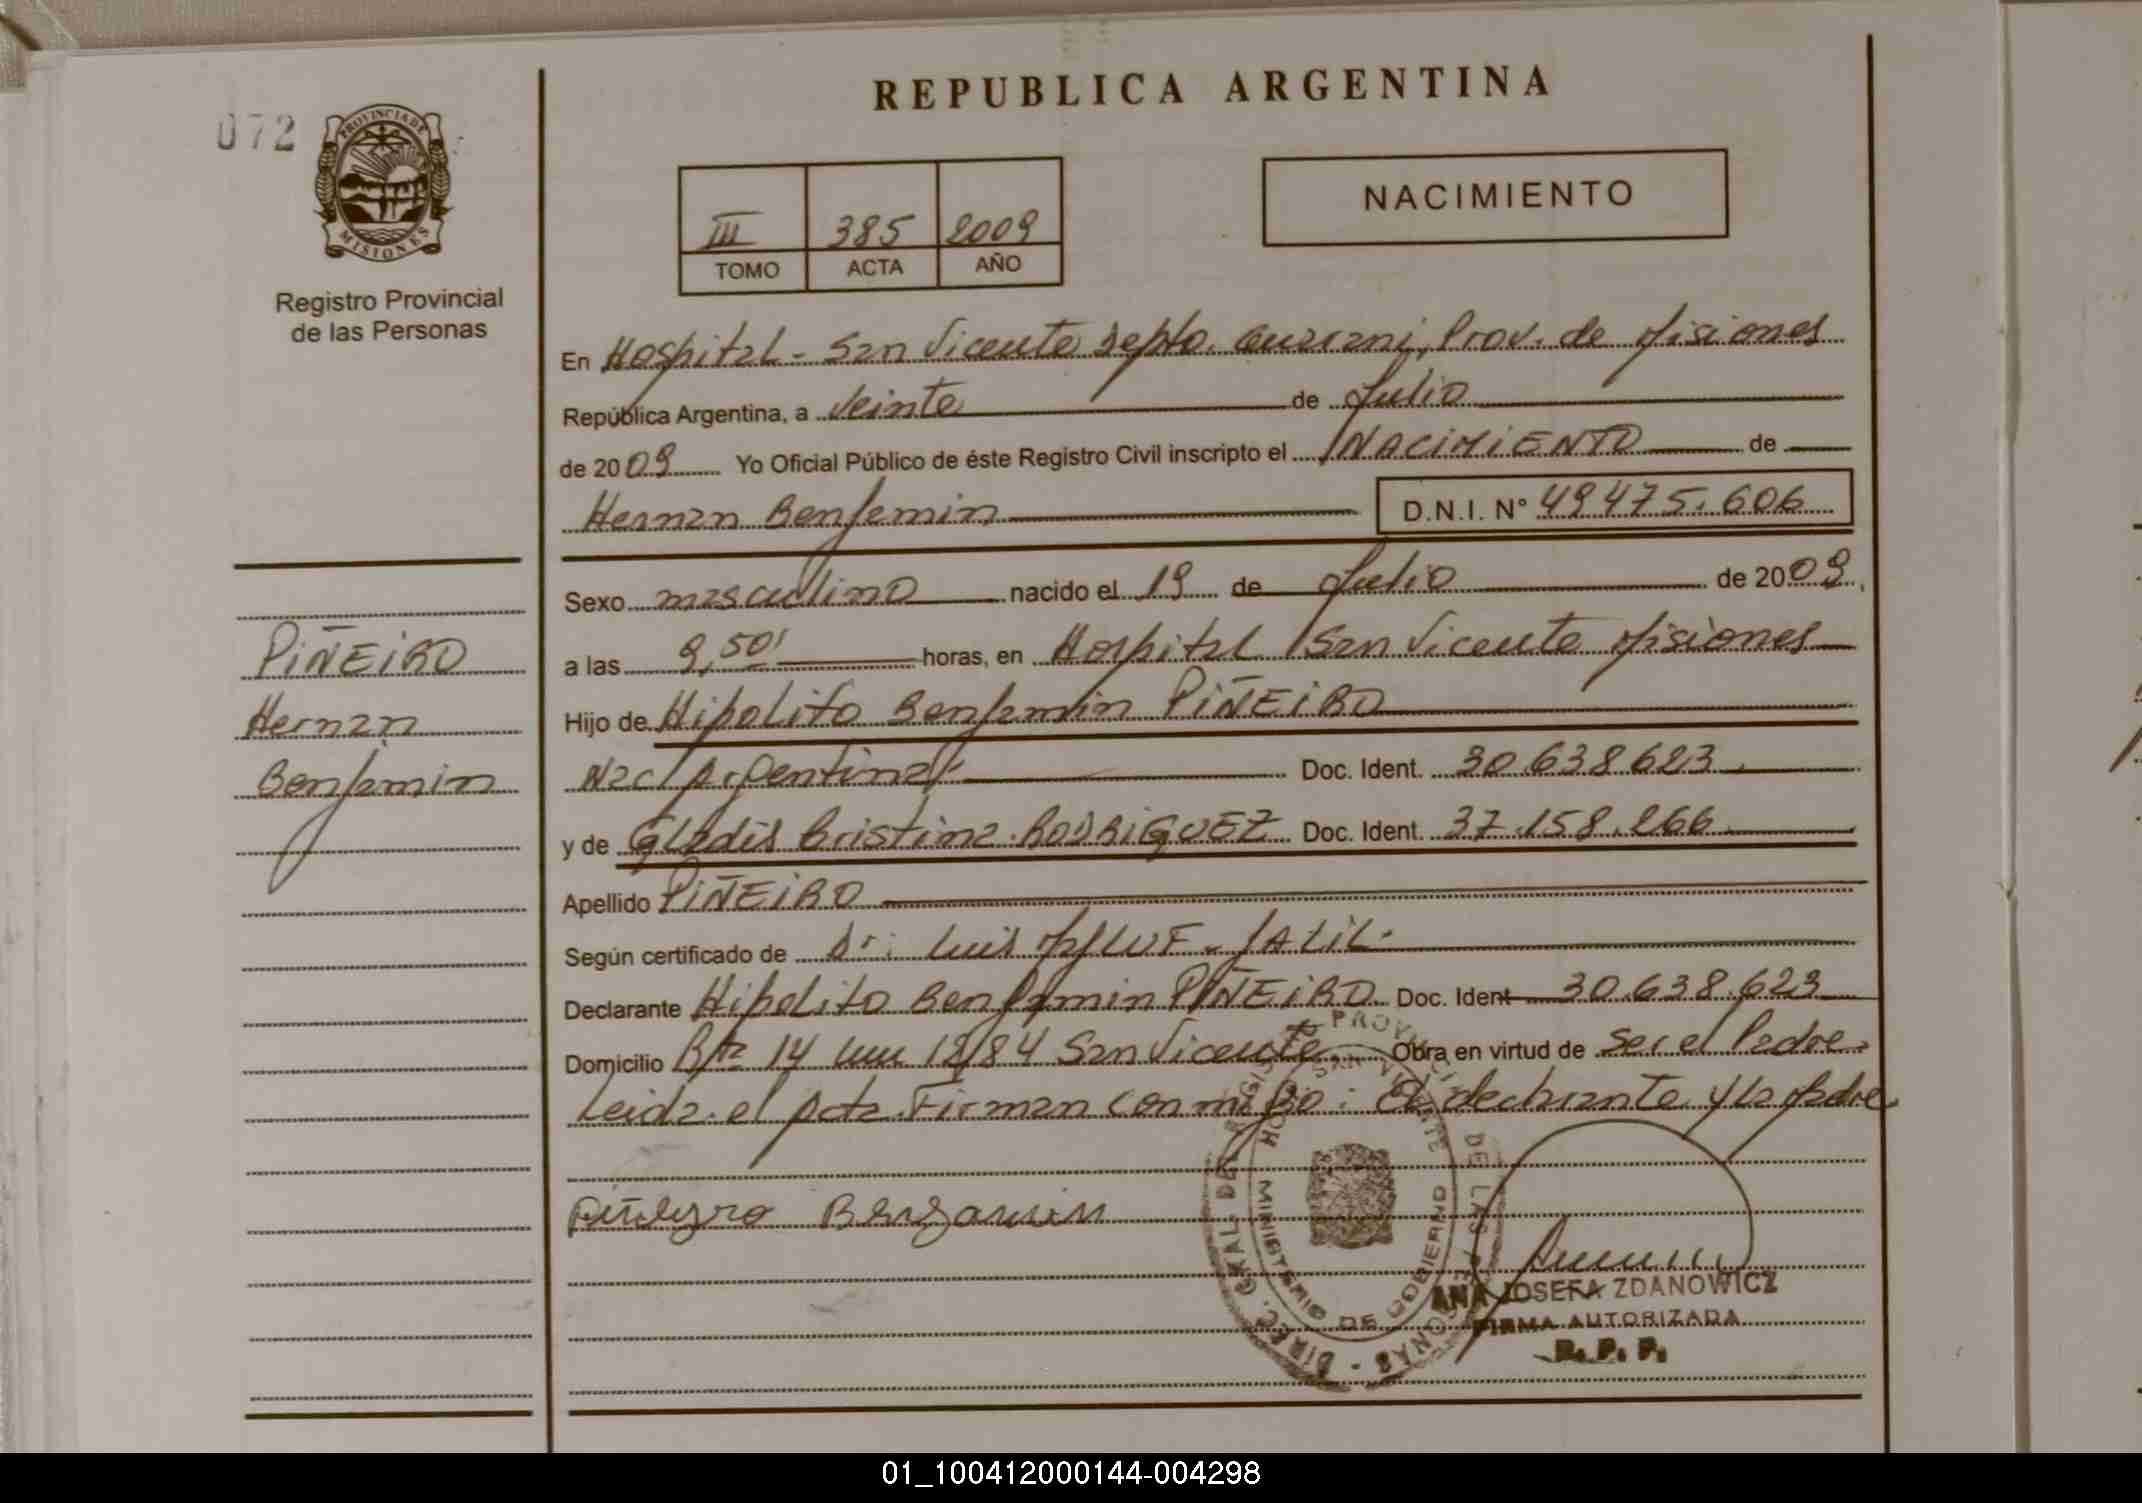 072
PROVINCIA DE
MISIONES
Registro Provincial
de las Personas
REPUBLICA ARGENTINA
III 385 2009
TOMO ACTA AÑO
NACIMIENTO
En Hospital - San Vicente Depto. Guarani, Prov. de Misiones
República Argentina, a Veinte de Julio
de 2009 Yo Oficial Público de éste Registro Civil inscripto el NACIMIENTO de
Hernan Benjamin D.N.I. N° 49475.606
Sexo masculino nacido el 19 de Julio de 2009,
a las 9,50' horas, en Hospital San Vicente Misiones
Hijo de Hipolito Benjamin PIÑEIRO
Nac Argentina Doc. Ident. 30.638623
y de Gladis Cristina RODRIGUEZ Doc. Ident. 37.158.266
Apellido PIÑEIRO
Según certificado de Dr: Luis
Declarante Hipolito Benjamin PIÑEIRO Doc. Ident 30.638.623
Domicilio Rta 14 San Vicente Obra en virtud de Ser el Padre
Leida el Acta Firman conmigo: El declarante y la Madre
PIÑEIRO
Hernan
Benjamin
Piñeyro Benjamin
DIREC. GRAL DEL REGIST. PROVINCIAL DE LAS PERSONAS
HOSPITAL SAN VICENTE
MINISTERIO DE GOBIERNO
ANA JOSEFA ZDANOWICZ
FIRMA AUTORIZADA
R. P. P.
01_100412000144-004298